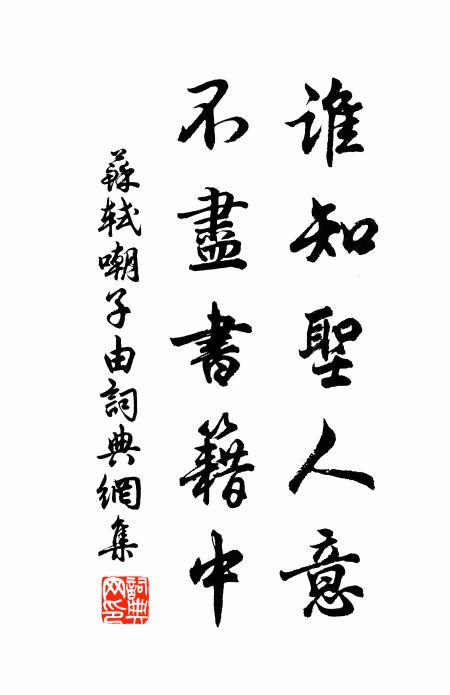 誰知聖人意
不盡書籍中
蘇軾嘲子由詞典網集
詞典網印